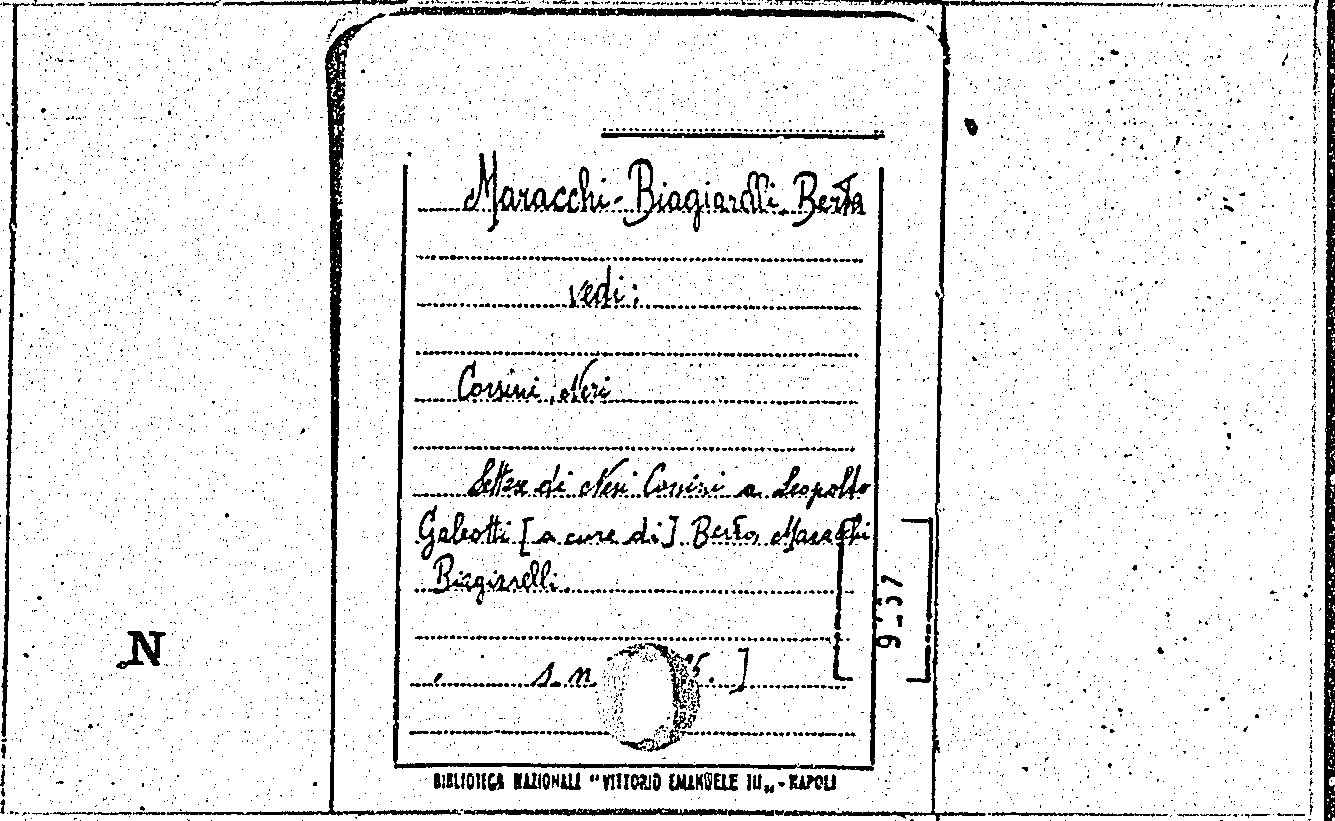 Maracchi-Biagiarelli Berta
vedi:
Corsini, Neri
Lettere di Neri Corsini a Leopoldo
Galeotti [a cura di] Berta Maracchi
Biagiarelli.
s. n.
N
BIBLIOTECA NAZIONALE "VITTORIO EMANUELE III„ - NAPOLI